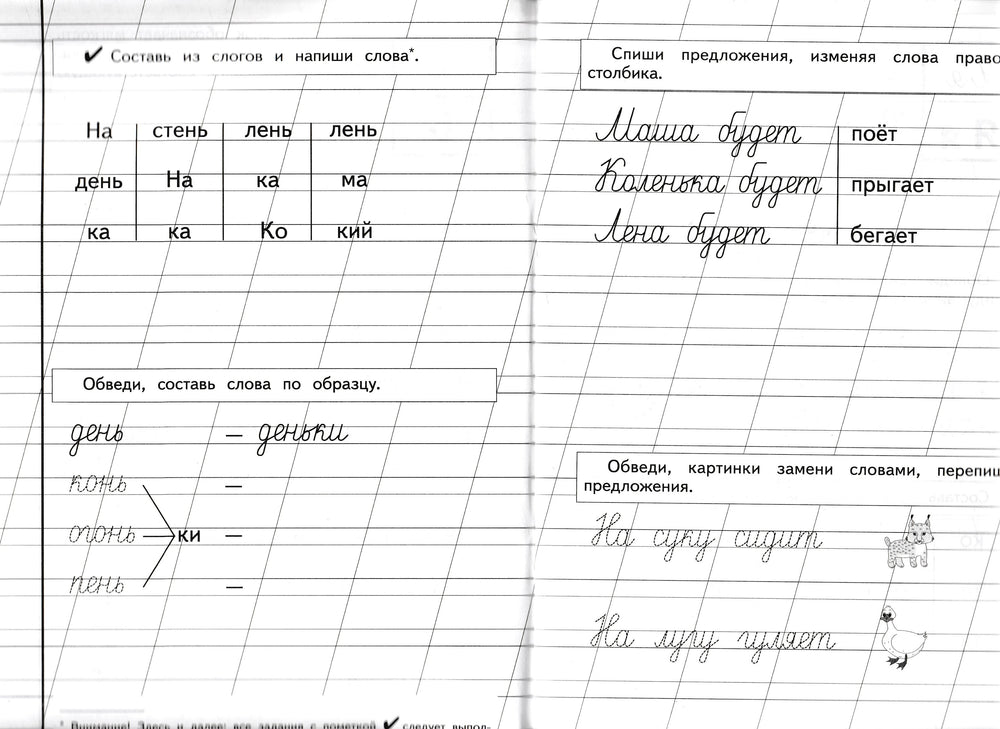 ✔ Составь из слогов и напиши слова*.
На стень лень лень
день На ка ма
ка ка Ко кий
Обведи, составь слова по образцу.
день – деньки
конь –
огонь ки –
пень –
* Внимание! Здесь и далее: все задания с пометкой ✔ следует выпол-
Спиши предложения, изменяя слова право
столбика.
Маша будет поёт
Коленька будет прыгает
Лена будет бегает
Обведи, картинки замени словами, перепиш
предложения.
На суку сидит
На лугу гуляет